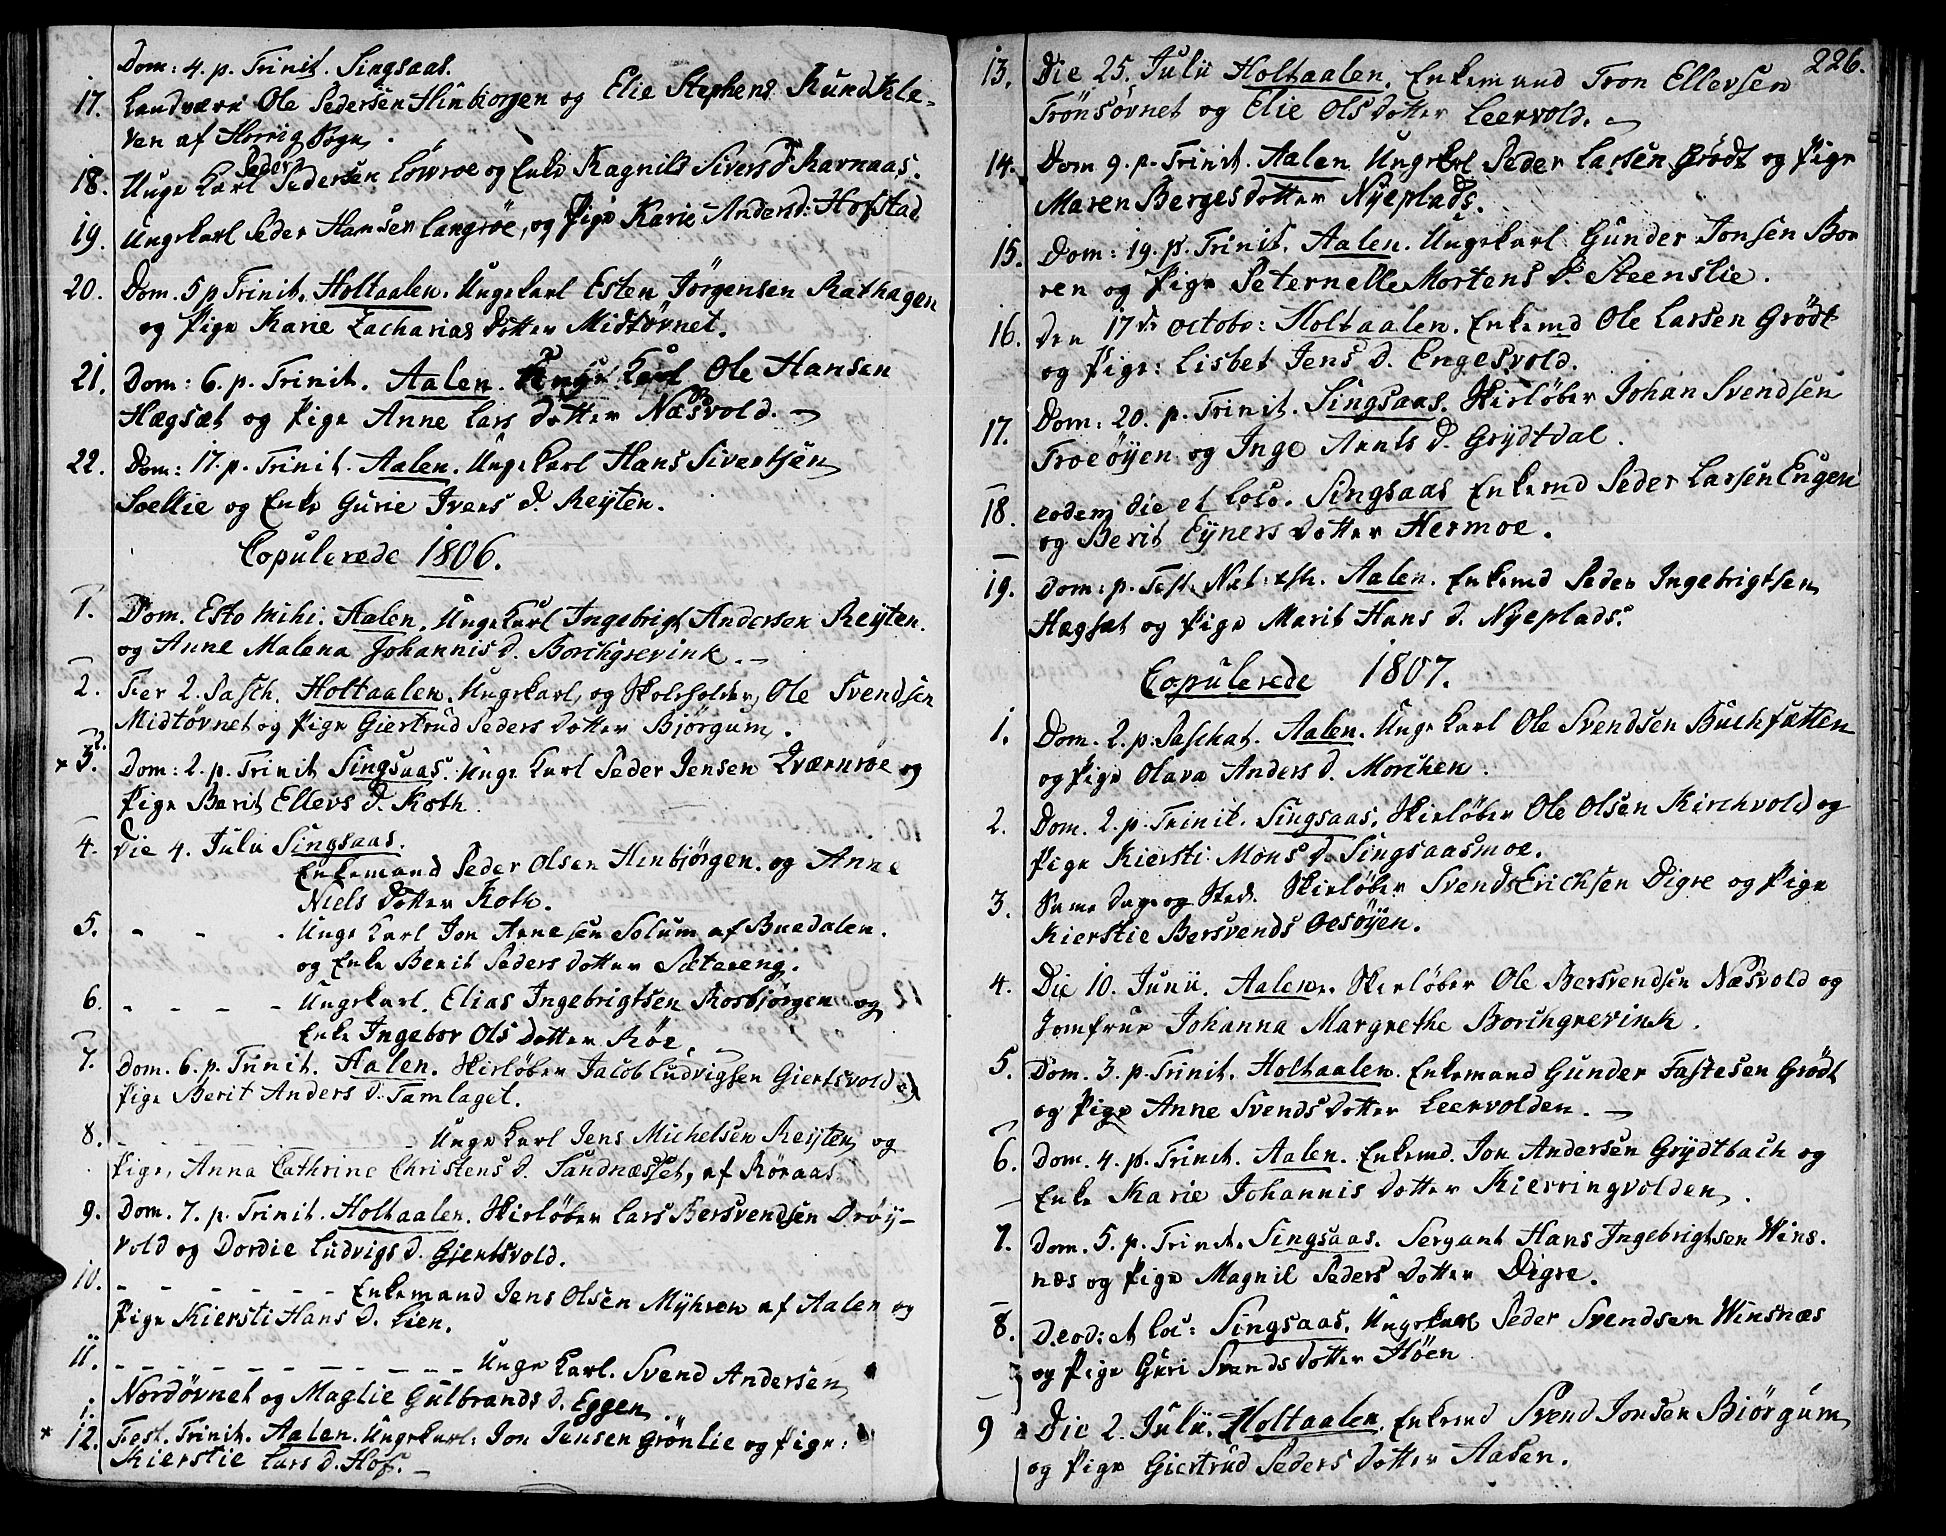 Dom: 4. p. Trinit. Singsaas.
17. Landværn Ole Pedersen Hinbiorgen og Elie Stephens Rundkle-
ven af Horrig Sogn.
18. Unge Karl Peder Pedersen Lowroe og Enke Ragnild Sivers d. Ravnaas.
19. Ungekarl Peder Hansen Langröe, og Pige Karie Anders d: Hofstad
20. Dom. 5 p Trinit. Holtaalen. Ungekarl Esten Jörgensen Rathagen
og Pige Karie Zacharias Dotter Midtövnet.
21. Dom: 6. p. Trinit. Aalen. Unge Karl Ole Hansen
Hægsæt og Pige Anne Lars dotter Næsvold.
22. Dom: 17. p. Trinit. Aalen. Unge Karl Hans Sivertsen
Soellie og Enke Gurie Ivers d. Reÿten.
Copulerede 1806.
1. Dom. Esto mihi. Aalen. Unge Karl Ingebrigt Andersen Reÿten.
og Anne Malena Johannis d. Borchgrevink.
2. Fer 2. Pasch. Holtaalen. Ungekarl og Skoleholder, Ole Svendsen
Midtövnet og Pige Giertrud Peders Dotter Bjôrgum.
x 3. Dom: 2. p. Trinit Singsaas. Unge Karl Peder Jensen Kværnröe og
Pige Barit Ellevs d. Koth.
4. Die 4. Julii Singsaas.
Enkemand Peder Olsen Henbjörgen. og Anne
Niels Dotter Koth.
5. - - - Unge Karl Jon Arnesen Solum af Buedalen.
og Enke Berit Peders dotter Sætereng.
6. - - - - Ungekarl. Elias Ingebrigtsen Rosbjörgen og
Enke Ingebor Ols Dotter Röe.
7. Dom. 6. p. Trinit. Aalen. Skielöber Jacob Ludvigsen Giertsvold og
Pige Berit Anders d. Tamlaget.
8. - - - - - - - Unge Karl Jens Michelsen Reÿten og
Pige, Anna Cathrine Christens d. Sandnæsset, af Röraas.
9. Dom. 7. p. Trinit. Holtaalen. Skielöber Lars Bersvendsen Dröÿ-
vold og Dordie Ludvigs d. Giertsvold.
10. - - - - - - Enkemand Jens Olsen Mÿhren af Aalen og
Pige Kiersti Hans d. Lien.
11. - - - - - - - - - Unge Karl. Svend Andersen
Nordövnet og Maglie Gulbrands d. Eggen.
x 12. Fest. Trinit. Aalen. Ungekarl: Jon Jensen Grönlie og Pige:
Kierstie Lars d. Hof.
226.
13. Die 25. Julii Holtaalen. Enkemand Tron Ellevsen
Trönsövnet og Elie Ols dotter Leervold.
14. Dom 9. p. Trinit. Aalen Ungekarl Peder Larsen Grödt og Pige
Maren Berges dotter Nÿeplads.
15. Dom: 19. p. Trinit. Aalen. Ungekarl Gunder Jonsen Bor
ren og Pige Peternelle Mortens d. Steenslie.
16. den 17de octobr: Holtaalen. Enkemd Ole Larsen Grödt
og Pige: Lisbet Jens d. Engesvold.
17. Dom: 20. p. Trinit. Singsaas. Skielöber Johan Svendsen
Troeöÿen og Inge Arnts d. Grÿdtdal.
18. eodem die et loco. Singsaas Enkemd Peder Larsen Engen
og Berit Eÿners Dotter Hermoe.
19. Dom: p. Fest. Nat: Aalen. Enkemd Peder Ingebrigtsen
Hægsæt og Pige Marit Hans d. Nÿeplads.
Copulerede 1807.
1. Dom. 2. p. Paschat. Aalen. Unge Karl Ole Svendsen Buchsætten
og Pige Olava Anders d. Morchen.
2. Dom. 2. p. Trinit. Singsaas. Skielöber Ole Olsen Kirchvold og
Pige Kiersti Mons d. Singsaasmoe.
3. Same Dage og Sted. Skielöber Svends Erichsen Digre og Pige
Kierstie Bersvends Oesöÿen.
4. Die 10. Junii. Aalen. Skielöber Ole Bersvendsen Næsvold og
Jomfrue Johanna Margrethe Borchgrevink.
5. Dom. 3. p. Trinit. Holtaalen. Enkemand Gunder Fastesen Grödt
og Pige Anne Svends Dotter Leervolden.
6. Dom. 4. p. Trinit. Aalen. Enkemd. Jon Andersen Grÿdtbach og
Enke Karie Johannis dotter Kierringvolden.
7. Dom. 5. p. Trinit. Singsaas. Sergant Hans Ingebrigtsen Wins-
næs og Pige Magnil Peders Dotter Digre.
8. D. eod: et loc: Singsaas. Ungekarl Peder Svendsen Winsnæs
og Pige Guri Svends Dotter Höen
9 Die 2. Julii. Holtaalen. Enkemd Svend Jonsen Biörgum
og Pige Giertrud Peders Dotter Aalen.